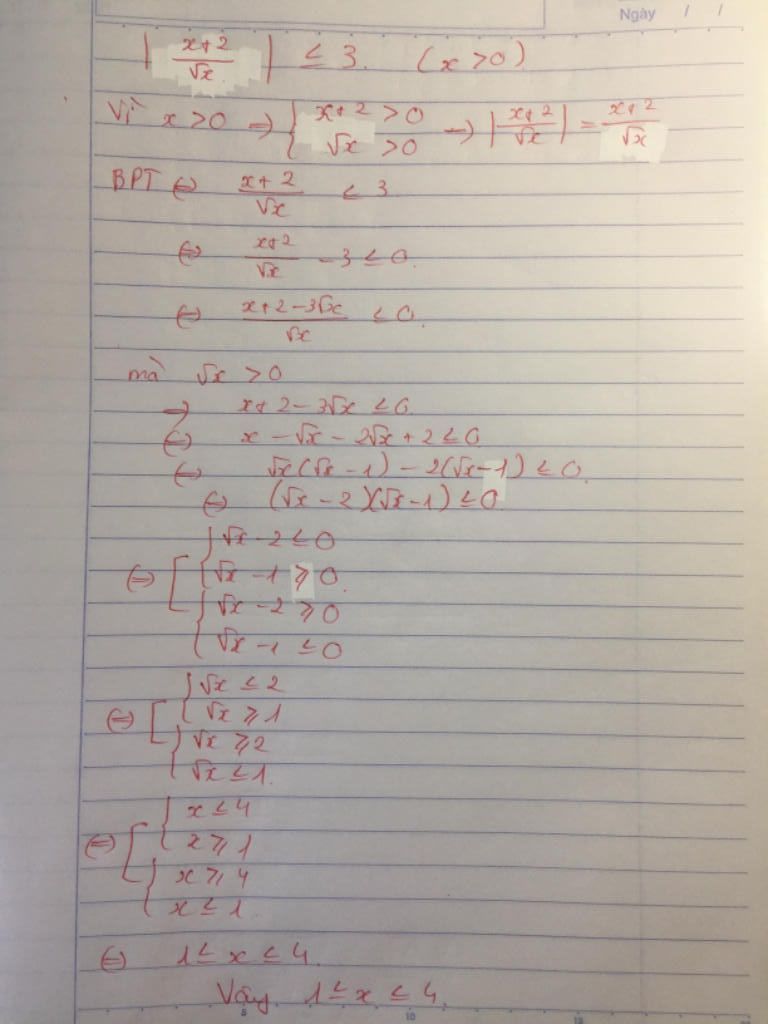 Ngày / /
| x+2 / √x | ≤ 3. (x > 0)
Vì x > 0 → { x+2 > 0 √x > 0 → | x+2 / √x | = x+2 / √x
BPT ⇔ x+2 / √x ≤ 3
⇔ x+2 / √x − 3 ≤ 0
⇔ x+2−3√x / √x ≤ 0.
mà √x > 0
→ x+2−3√x ≤ 0
⇔ x − √x − 2√x + 2 ≤ 0
⇔ √x(√x − 1) − 2(√x−1) ≤ 0.
⇔ (√x − 2)(√x−1) ≤ 0
⇔ [ { √x − 2 ≤ 0
√x − 1 ≥ 0.
{ √x − 2 ≥ 0
√x − 1 ≤ 0
⇔ [ { √x ≤ 2
√x ≥ 1
{ √x ≥ 2
√x ≤ 1.
⇔ [ { x ≤ 4
x ≥ 1
{ x ≥ 4
x ≤ 1.
⇔ 1 ≤ x ≤ 4.
Vậy 1 ≤ x ≤ 4.
10